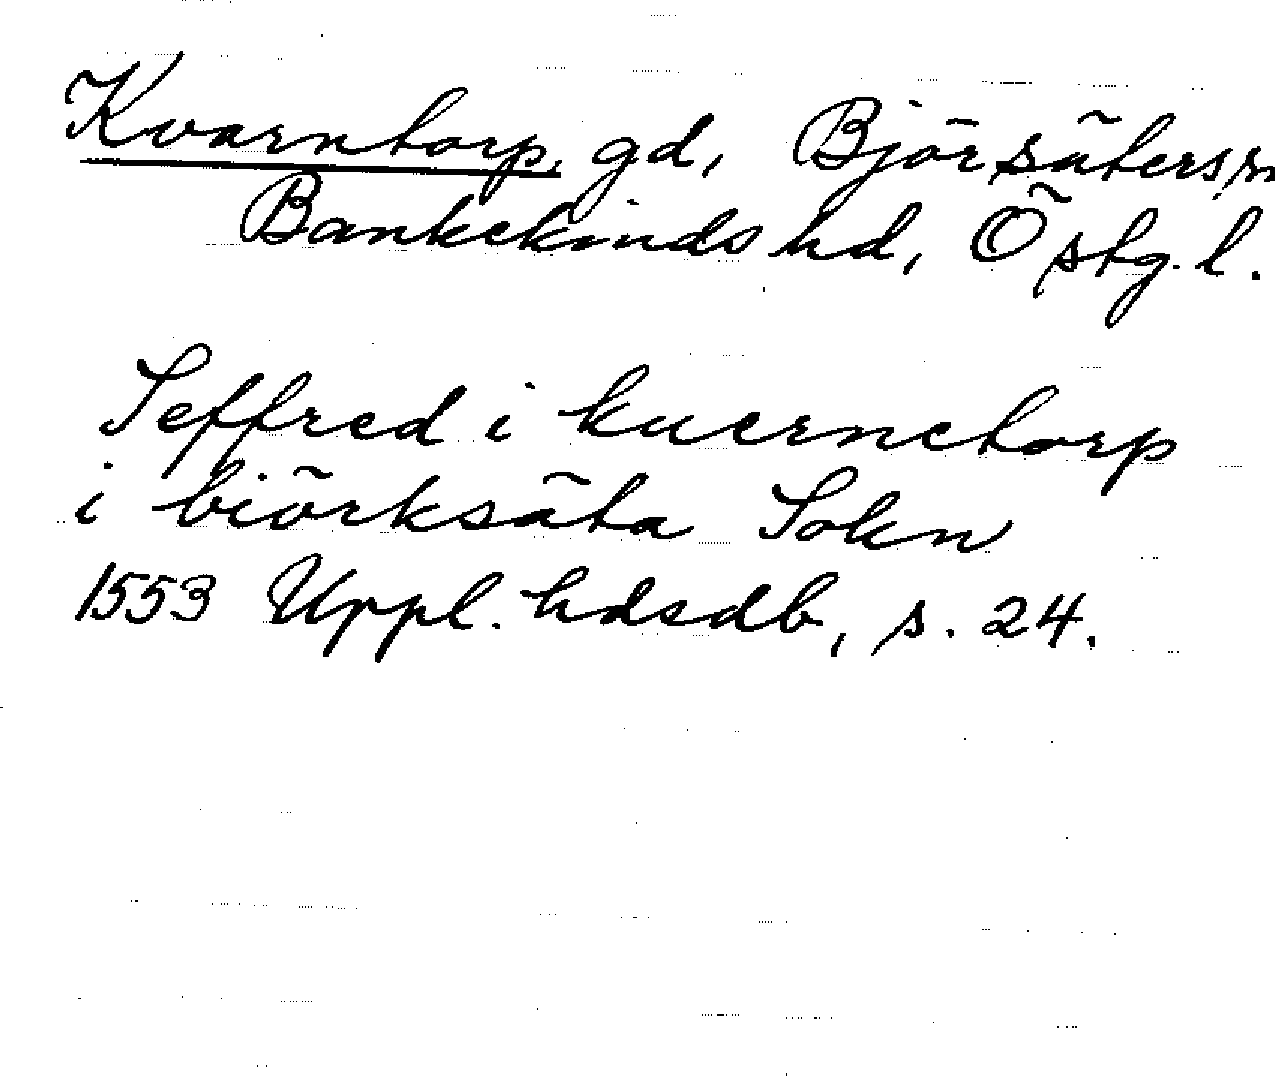 Kvarntorp, gd, Björsäters sn
Bankekinds hd, Östg. l.
Seffred i kuernetorp
i biörksäta Sokn
1553 Uppl. hdsdb, s. 24.